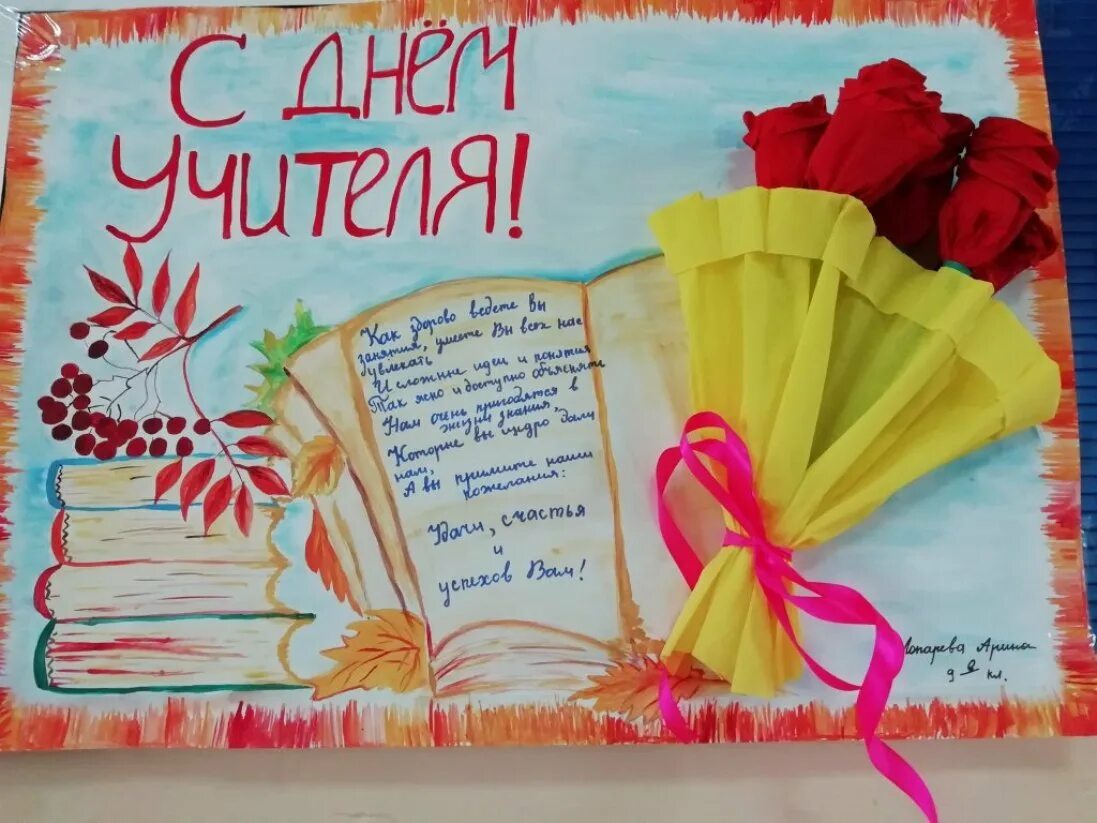 С ДНЁМ
УЧИТЕЛЯ!
Как здорово ведете Вы
занятия, умеете Вы всех нас
увлекать
И сложные идеи и понятия
Так ясно и доступно объяснять
Нам очень пригодятся в
жизни знания,
Которые вы щедро дали
нам,
А вы примите наши
пожелания:
Удачи, счастья
и
успехов Вам!
Лопарева Арина
9 кл.